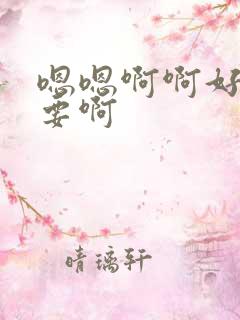 嗯嗯啊啊好
要啊
晴璃轩